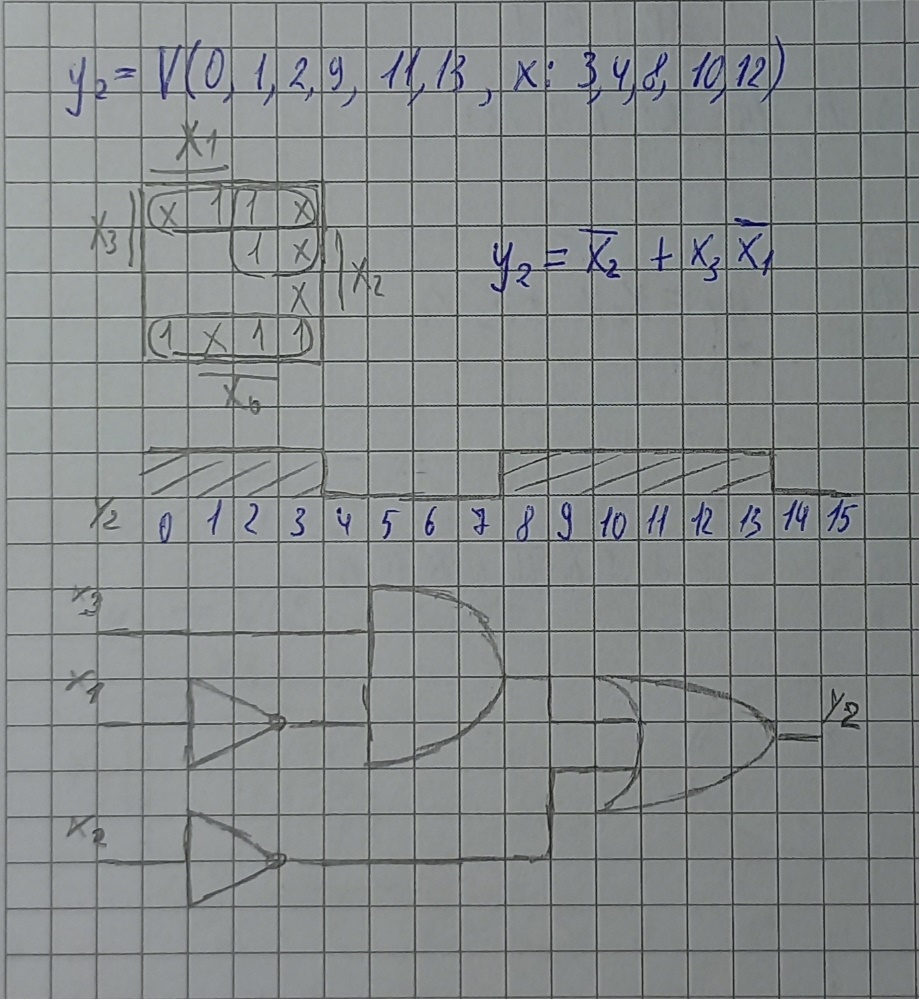 y₂ = V(0, 1, 2, 9, 11, 13, x: 3, 4, 8, 10, 12)
X1
X3 X 1 1 X
1 X X2
X
1 X 1 1
X0
y₂ = X̅₂ + X₃ X̅₁
Y2 0 1 2 3 4 5 6 7 8 9 10 11 12 13 14 15
X3
X1
Y2
X2